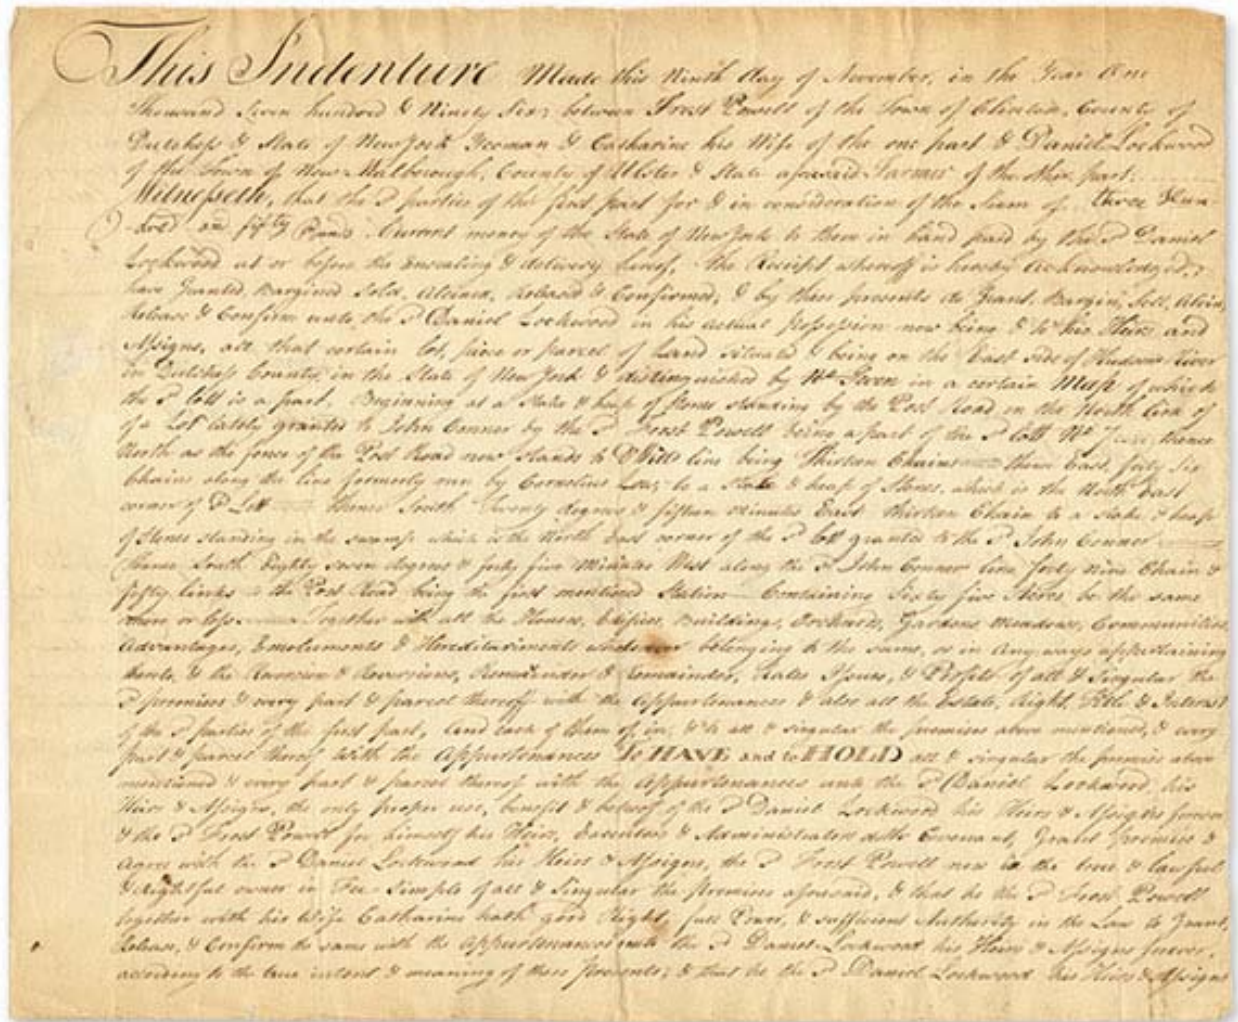 This Indenture Made this Ninth day of November, in the Year One
Thousand Seven hundred & Ninety Six; between Frost Powell of the Town of Clinton, County of
Dutchess & State of New York Yeoman & Catharine his Wife of the one part & Daniel Lockwood
of the Town of New Malborough, County of Ulster & State aforesaid Farmer of the other part.
Witnesseth, that the Sd parties of the first part for & in consideration of the Sum of three Hun-
-dred and fifty Pounds Current money of the State of New York to them in hand paid by the Sd Daniel
Lockwood at or before the Ensealing & delivery hereof, the Receipt whereoff is hereby Acknowledged,
have Granted, Bargined Sold, Aliened, Released & Confirmed; & by these presents do Grant, Bargin, Sell, Alien,
Release & Confirm unto the Sd Daniel Lockwood in his actual possession now being & to his Heirs and
Assigns, all that certain lot, piece or parcel of Land situated & being on the East side of Hudsons River
in Dutchess County, in the State of New York & distinguished by No Seven in a certain Map of which
the Sd lott is a part. Beginning at a Stake & heap of Stones standing by the Post Road in the North line of
of a Lot lately granted to John Conner by the Sd Frost Powell being a part of the Sd lott No thence
North as the fence of the Post Road now stands to line being Thirteen Chains thence East, forty Six
Chains along the line formerly run by Cornelius to a Stake & heap of Stones, which is the North East
corner of Sd Lott thence South Twenty degrees & fifteen minutes East thirteen Chain to a stake & heap
of Stones standing in the swamp which is the North East corner of the Sd lott granted to the Sd John Conner
thence South Eighty seven degrees & forty five Minutes West along the Sd John Conner line forty nine Chain &
fifty links to the Post Road being the first mentioned Station Containing Sixty five Acres be the same
more or less. Together with all the Houses, Edifices, Buildings, Orchards, Gardens, Meadows, Communities,
Advantages, Emoluments & Hereditaments whatsoever belonging to the same, or in Any ways appertaining
& the Reversion & Reversions, Remainder & Remainders, Rates Issues, & Profits of all & Singular the
Sd premises & every part & parcel thereoff with the Appurtenances & also all the Estate, Right, Title & Interest
of the Sd parties of the first part, and each of them of, in, & to all & singular the premises above mentioned, & every
part & parcel thereof with the Appurtenances To HAVE and to HOLD all & singular the premises above
mentioned & every part & parcel thereof with the Appurtenances unto the Sd Daniel Lockwood, his
Heirs & Assigns, the only proper use, benefit & behoof of the Sd Daniel Lockwood his Heirs & Assigns forever
& the Sd Frost Powell for himself his Heirs, Executors & Administrators doth Covenant, Grant promise &
agree with the Sd Daniel Lockwood his Heirs & Assigns, the Sd Frost Powell now is the true & lawful
& Rightful owner in Fee-Simple of all & Singular the premises aforesaid, & that he the Sd Frost Powell
together with his Wife Catharine hath good Right, full Power, & sufficient Authority in the Law to Grant,
Release, & Confirm the same with the Appurtenances unto the Sd Daniel Lockwood his Heirs & Assigns forever,
according to the true intent & meaning of these presents; & that he the Sd Daniel Lockwood his Heirs & Assigns